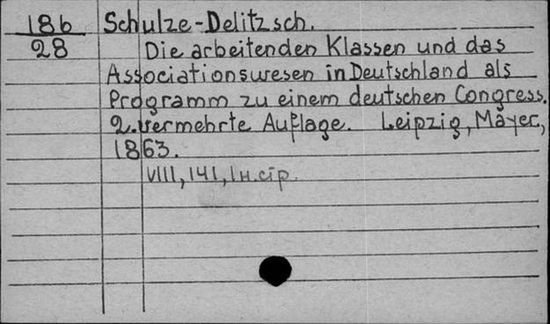 186 Schulze-Delitzsch.
28 Die arbeitenden Klassen und das
Associationswesen in Deutschland als
Programm zu einem deutschen Congress.
2. vermehrte Auflage. Leipzig, Mayer,
1863.
VIII, 141, 1 н. стр.